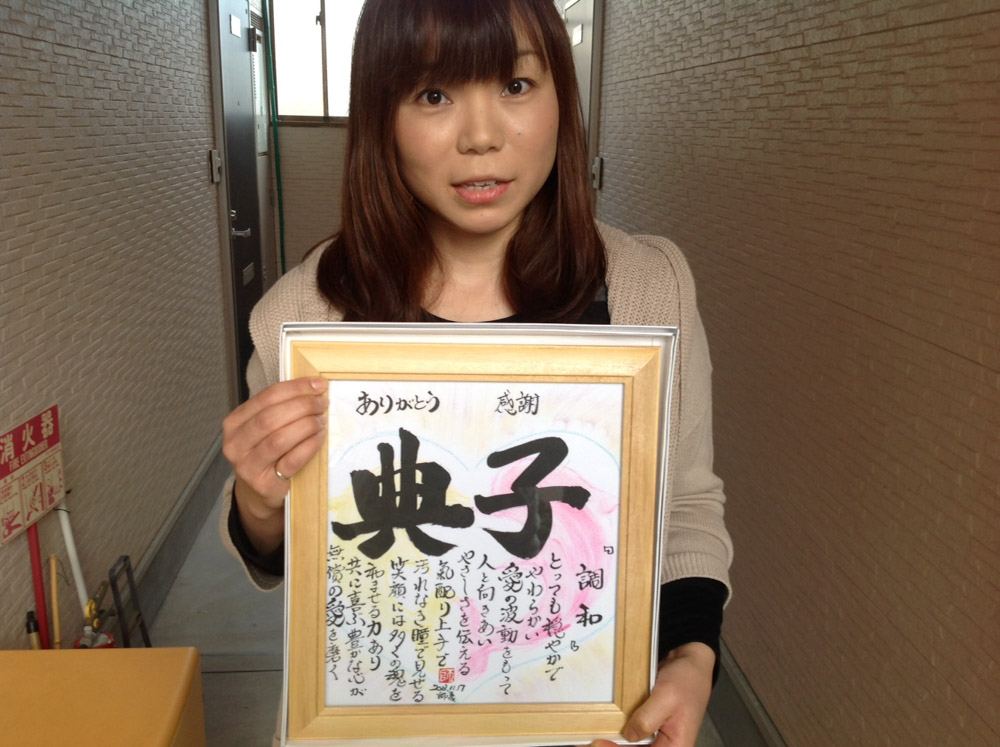 ありがとう
感謝
典子
『調和』
とっても穏やかで
やわらかい
愛の波動をもって
人と向きあい
やさしさを伝える
気配り上手で
汚れなき瞳で見せる
笑顔には多くの魂を
和ませる力あり
共に喜ぶ豊かな心が
無償の愛を磨く
消火器
FIRE EXTINGUISHER